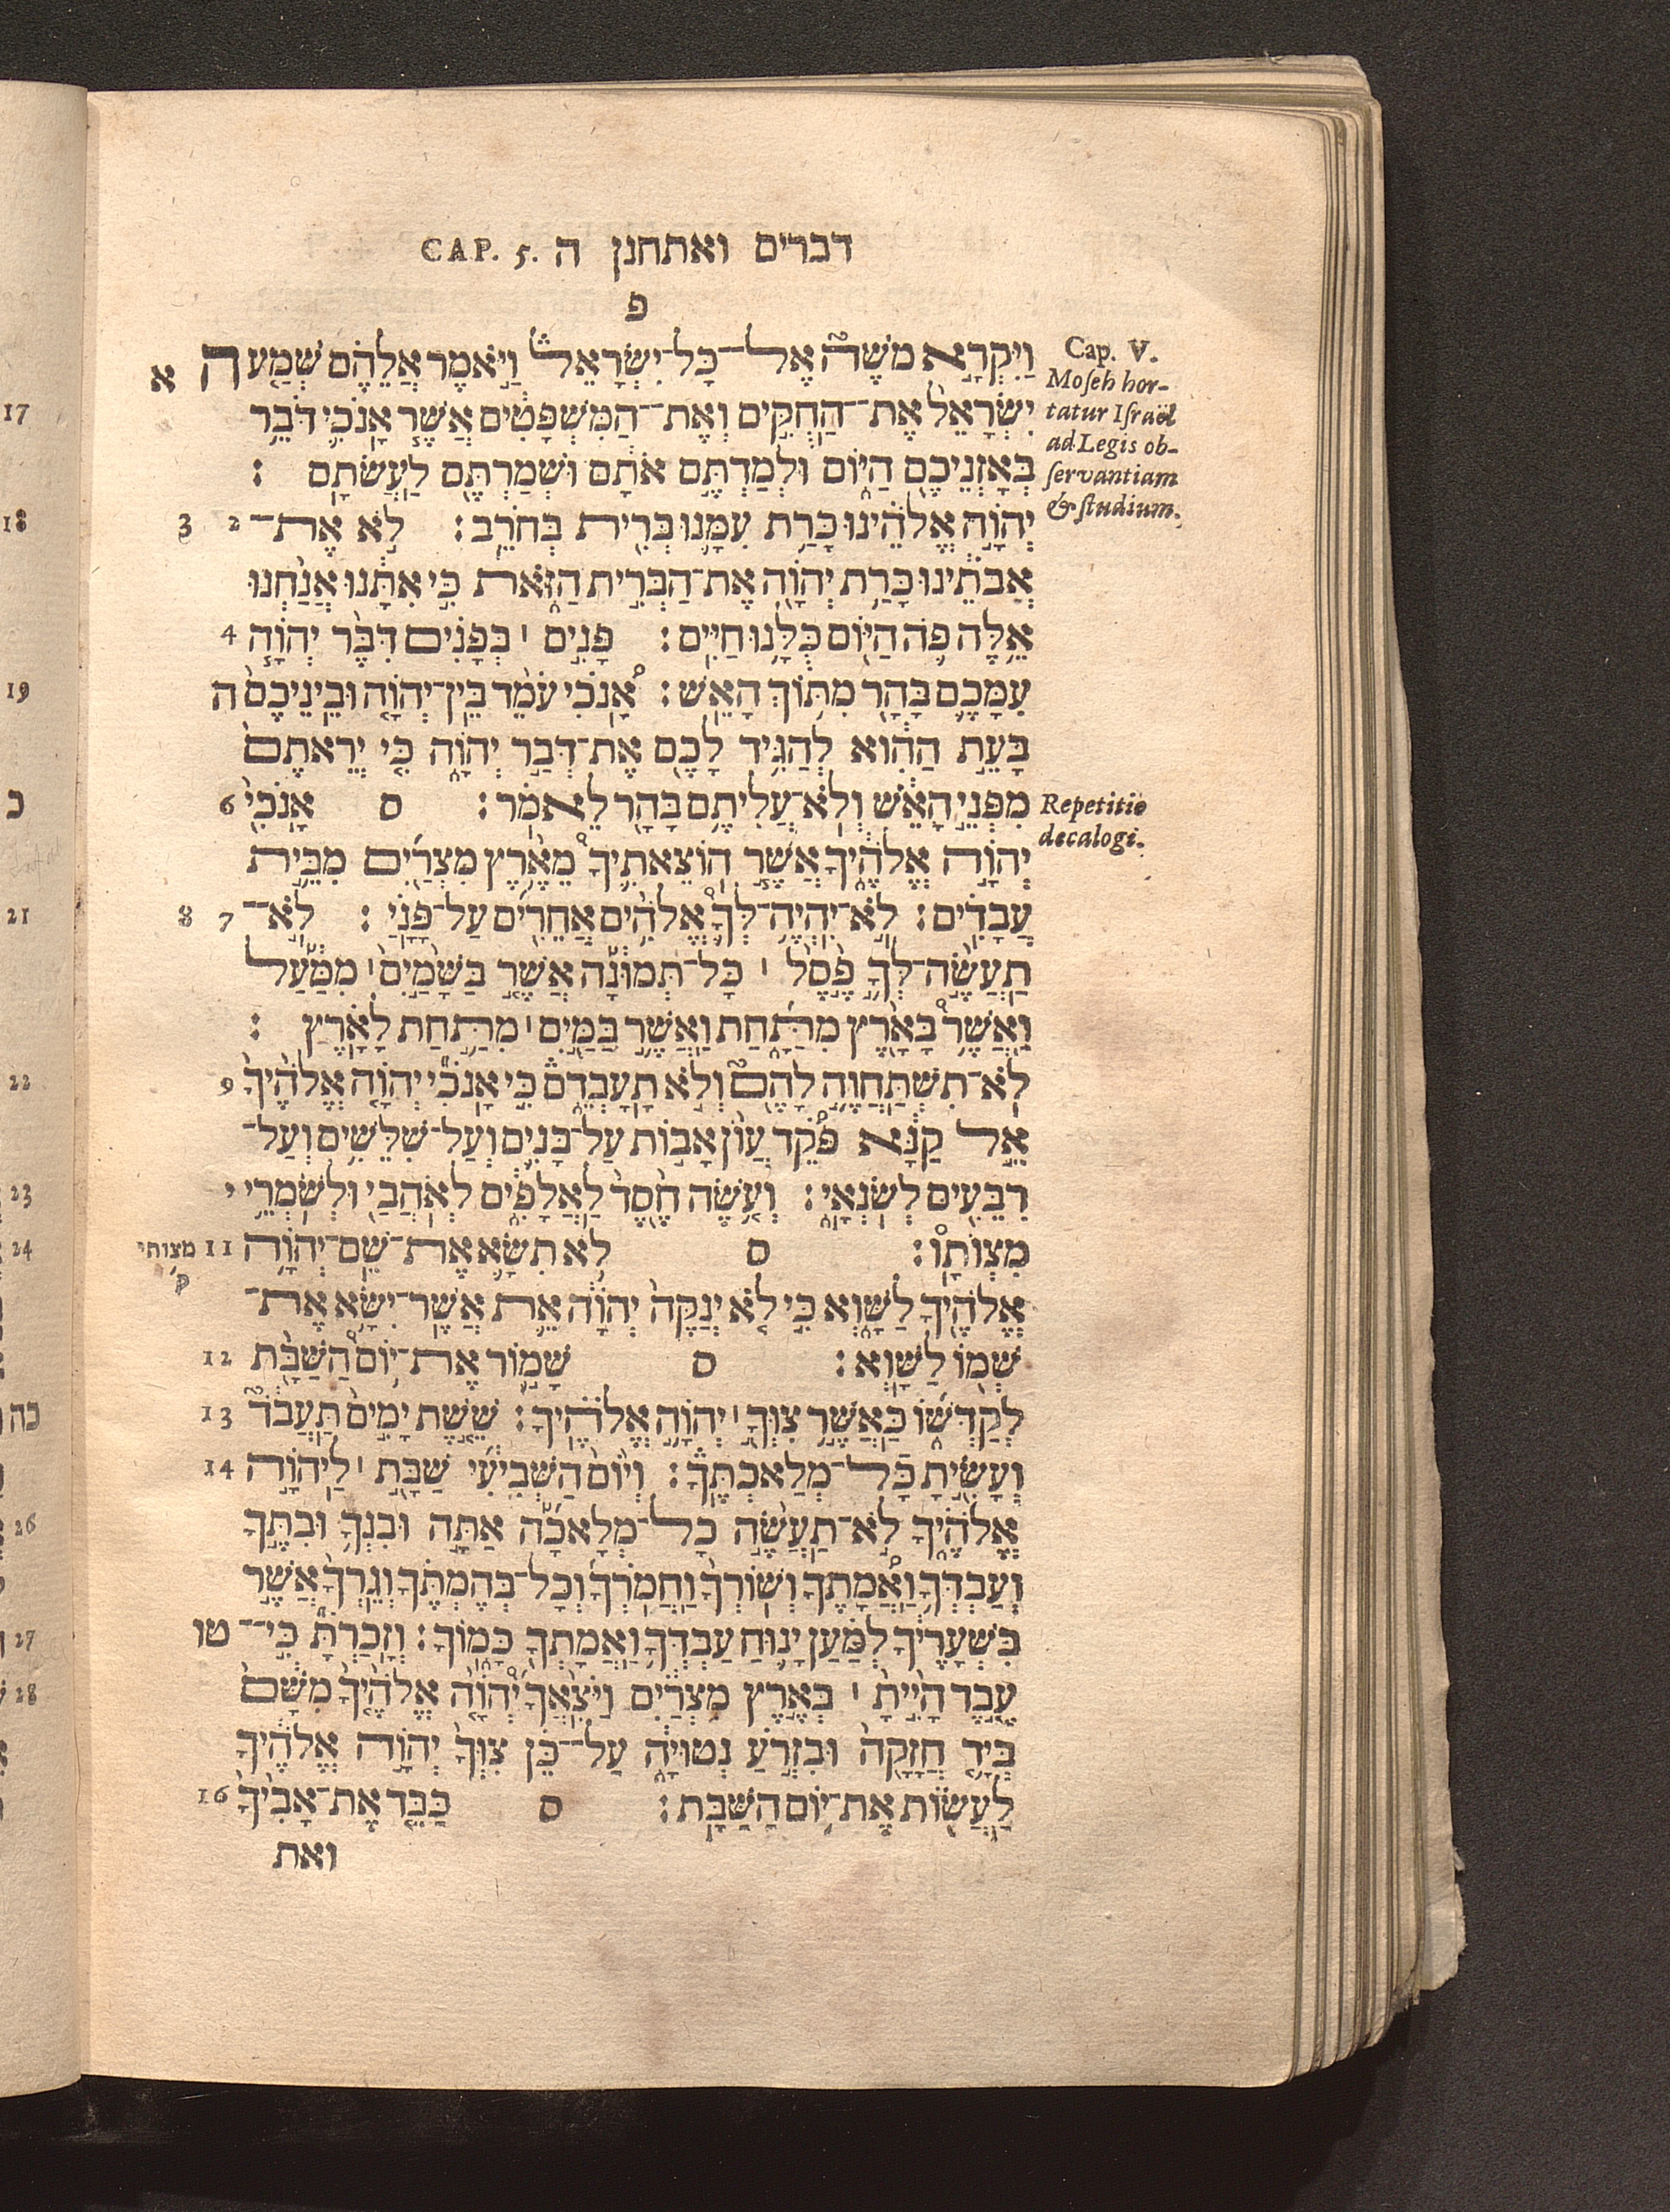 דברים ואתחנן ה CAP. 5.
פ
וַיִּקְרָא מֹשֶׁה אֶל־־כָּל־יִשְׂרָאֵל וַיֹּאמֶר אֲלֵהֶם שְׁמַע א
יִשְׂרָאֵל אֶת־־הַחֻקִּים וְאֶת־־הַמִּשְׁפָּטִים אֲשֶׁר אָנֹכִי דֹּבֵר
בְּאָזְנֵיכֶם הַיּוֹם וּלְמַדְתֶּם אֹתָם וּשְׁמַרְתֶּם לַעֲשֹׂתָם :
יְהוָֹה אֱלֹהֵינוּ כָּרַת עִמָּנוּ בְּרִית בְּחֹרֵב : לֹא אֶת־ 2 3
אֲבֹתֵינוּ כָּרַת יְהוָֹה אֶת־הַבְּרִית הַזֹּאת כִּי אִתָּנוּ אֲנַחְנוּ
אֵלֶּה פֹה הַיּוֹם כֻּלָּנוּ חַיִּים : פָּנִים ׀ בְּפָנִים דִּבֶּר יְהוָֹה 4
עִמָּכֶם בָּהָר מִתּוֹךְ הָאֵשׁ : אָנֹכִי עֹמֵד בֵּין־יְהוָֹה וּבֵינֵיכֶם ה
בָּעֵת הַהִוא לְהַגִּיד לָכֶם אֶת־דְּבַר יְהוָֹה כִּי יְרֵאתֶם
מִפְּנֵי הָאֵשׁ וְלֹא־עֲלִיתֶם בָּהָר לֵאמֹר : ס אָנֹכִי 6
יְהוָֹה אֱלֹהֶיךָ אֲשֶׁר הוֹצֵאתִיךָ מֵאֶרֶץ מִצְרַיִם מִבֵּית
עֲבָדִים : לֹא־יִהְיֶה־לְךָ אֱלֹהִים אֲחֵרִים עַל־פָּנָי : לֹא־־ 7 8
תַעֲשֶׂה־לְךָ פֶסֶל ׀ כָּל־תְּמוּנָה אֲשֶׁר בַּשָּׁמַיִם ׀ מִמַּעַל
וַאֲשֶׁר בָּאָרֶץ מִתָּחַת וַאֲשֶׁר בַּמַּיִם ׀ מִתַּחַת לָאָרֶץ :
לֹא־תִשְׁתַּחֲוֶה לָהֶם וְלֹא תָעָבְדֵם כִּי אָנֹכִי יְהוָֹה אֱלֹהֶיךָ 9
אֵל קַנָּא פֹּקֵד עֲוֹן אָבוֹת עַל־בָּנִים וְעַל־שִׁלֵּשִׁים וְעַל־
רִבֵּעִים לְשֹׂנְאָי : וְעֹשֶׂה חֶסֶד לַאֲלָפִים לְאֹהֲבַי וּלְשֹׁמְרֵי י
מִצְוֹתָו : ס לֹא תִשָּׂא אֶת־שֵׁם־יְהוָֹה 11 מצותי ק
אֱלֹהֶיךָ לַשָּׁוְא כִּי לֹא יְנַקֶּה יְהוָֹה אֵת אֲשֶׁר־יִשָּׂא אֶת־
שְׁמוֹ לַשָּׁוְא : ס שָׁמוֹר אֶת־יוֹם הַשַּׁבָּת 12
לְקַדְּשׁוֹ כַּאֲשֶׁר צִוְּךָ ׀ יְהוָֹה אֱלֹהֶיךָ : שֵׁשֶׁת יָמִים תַּעֲבֹד 13
וְעָשִׂיתָ כָּל־מְלַאכְתֶּךָ : וְיוֹם הַשְּׁבִיעִי שַׁבָּת ׀ לַיהוָֹה 14
אֱלֹהֶיךָ לֹא־תַעֲשֶׂה כָל־מְלָאכָה אַתָּה וּבִנְךָ וּבִתֶּךָ
וְעַבְדְּךָ וַאֲמָתֶךָ וְשׁוֹרְךָ וַחֲמֹרְךָ וְכָל־בְּהֶמְתֶּךָ וְגֵרְךָ אֲשֶׁר
בִּשְׁעָרֶיךָ לְמַעַן יָנוּחַ עַבְדְּךָ וַאֲמָתְךָ כָּמוֹךָ : וְזָכַרְתָּ כִּי־־ טו
עֶבֶד הָיִיתָ ׀ בְּאֶרֶץ מִצְרַיִם וַיֹּצִאֲךָ יְהוָֹה אֱלֹהֶיךָ מִשָּׁם
בְּיָד חֲזָקָה וּבִזְרֹעַ נְטוּיָה עַל־־כֵּן צִוְּךָ יְהוָֹה אֱלֹהֶיךָ
לַעֲשׂוֹת אֶת־יוֹם הַשַּׁבָּת : ס כַּבֵּד אֶת־אָבִיךָ 16
ואת
Cap. V.
Moſeh hor-
tatur Iſrael
ad Legis ob-
ſervantiam
& ſtudium.
Repetitio
decalogi.
17
18
19
כ
21
22
23
24
כה
26
27
28